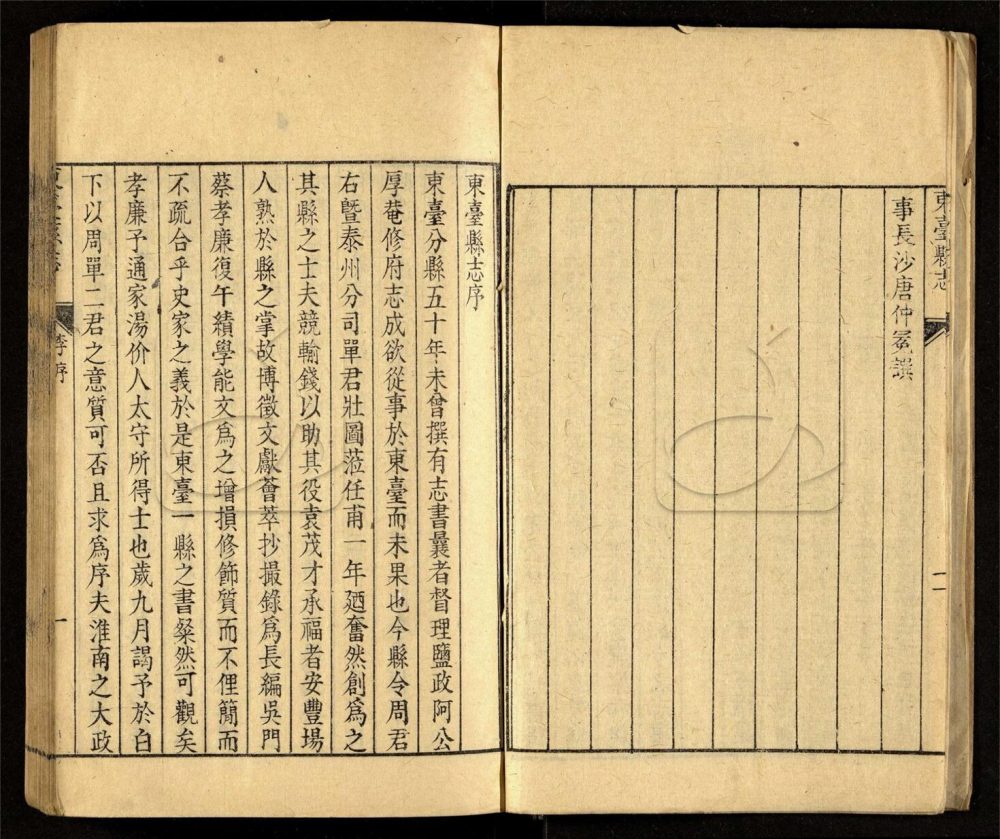 東臺縣志
事長沙唐仲冕譔
二
東臺縣志序
東臺分縣五十年未曾撰有志書曩者督理鹽政阿公
厚菴修府志成欲從事於東臺而未果也今縣令周君
右曁泰州分司單君壯圖蒞任甫一年廼奮然創爲之
其縣之士夫競輸錢以助其役袁茂才承福者安豐場
人熟於縣之掌故博徵文獻薈萃抄撮錄爲長編吳門
蔡孝廉復午績學能文爲之增損修飾質而不俚簡而
不疏合乎史家之義於是東臺一縣之書粲然可觀矣
孝廉予通家湯价人太守所得士也歲九月謁予於白
下以周單二君之意質可否且求爲序夫淮南之大政
李序
一